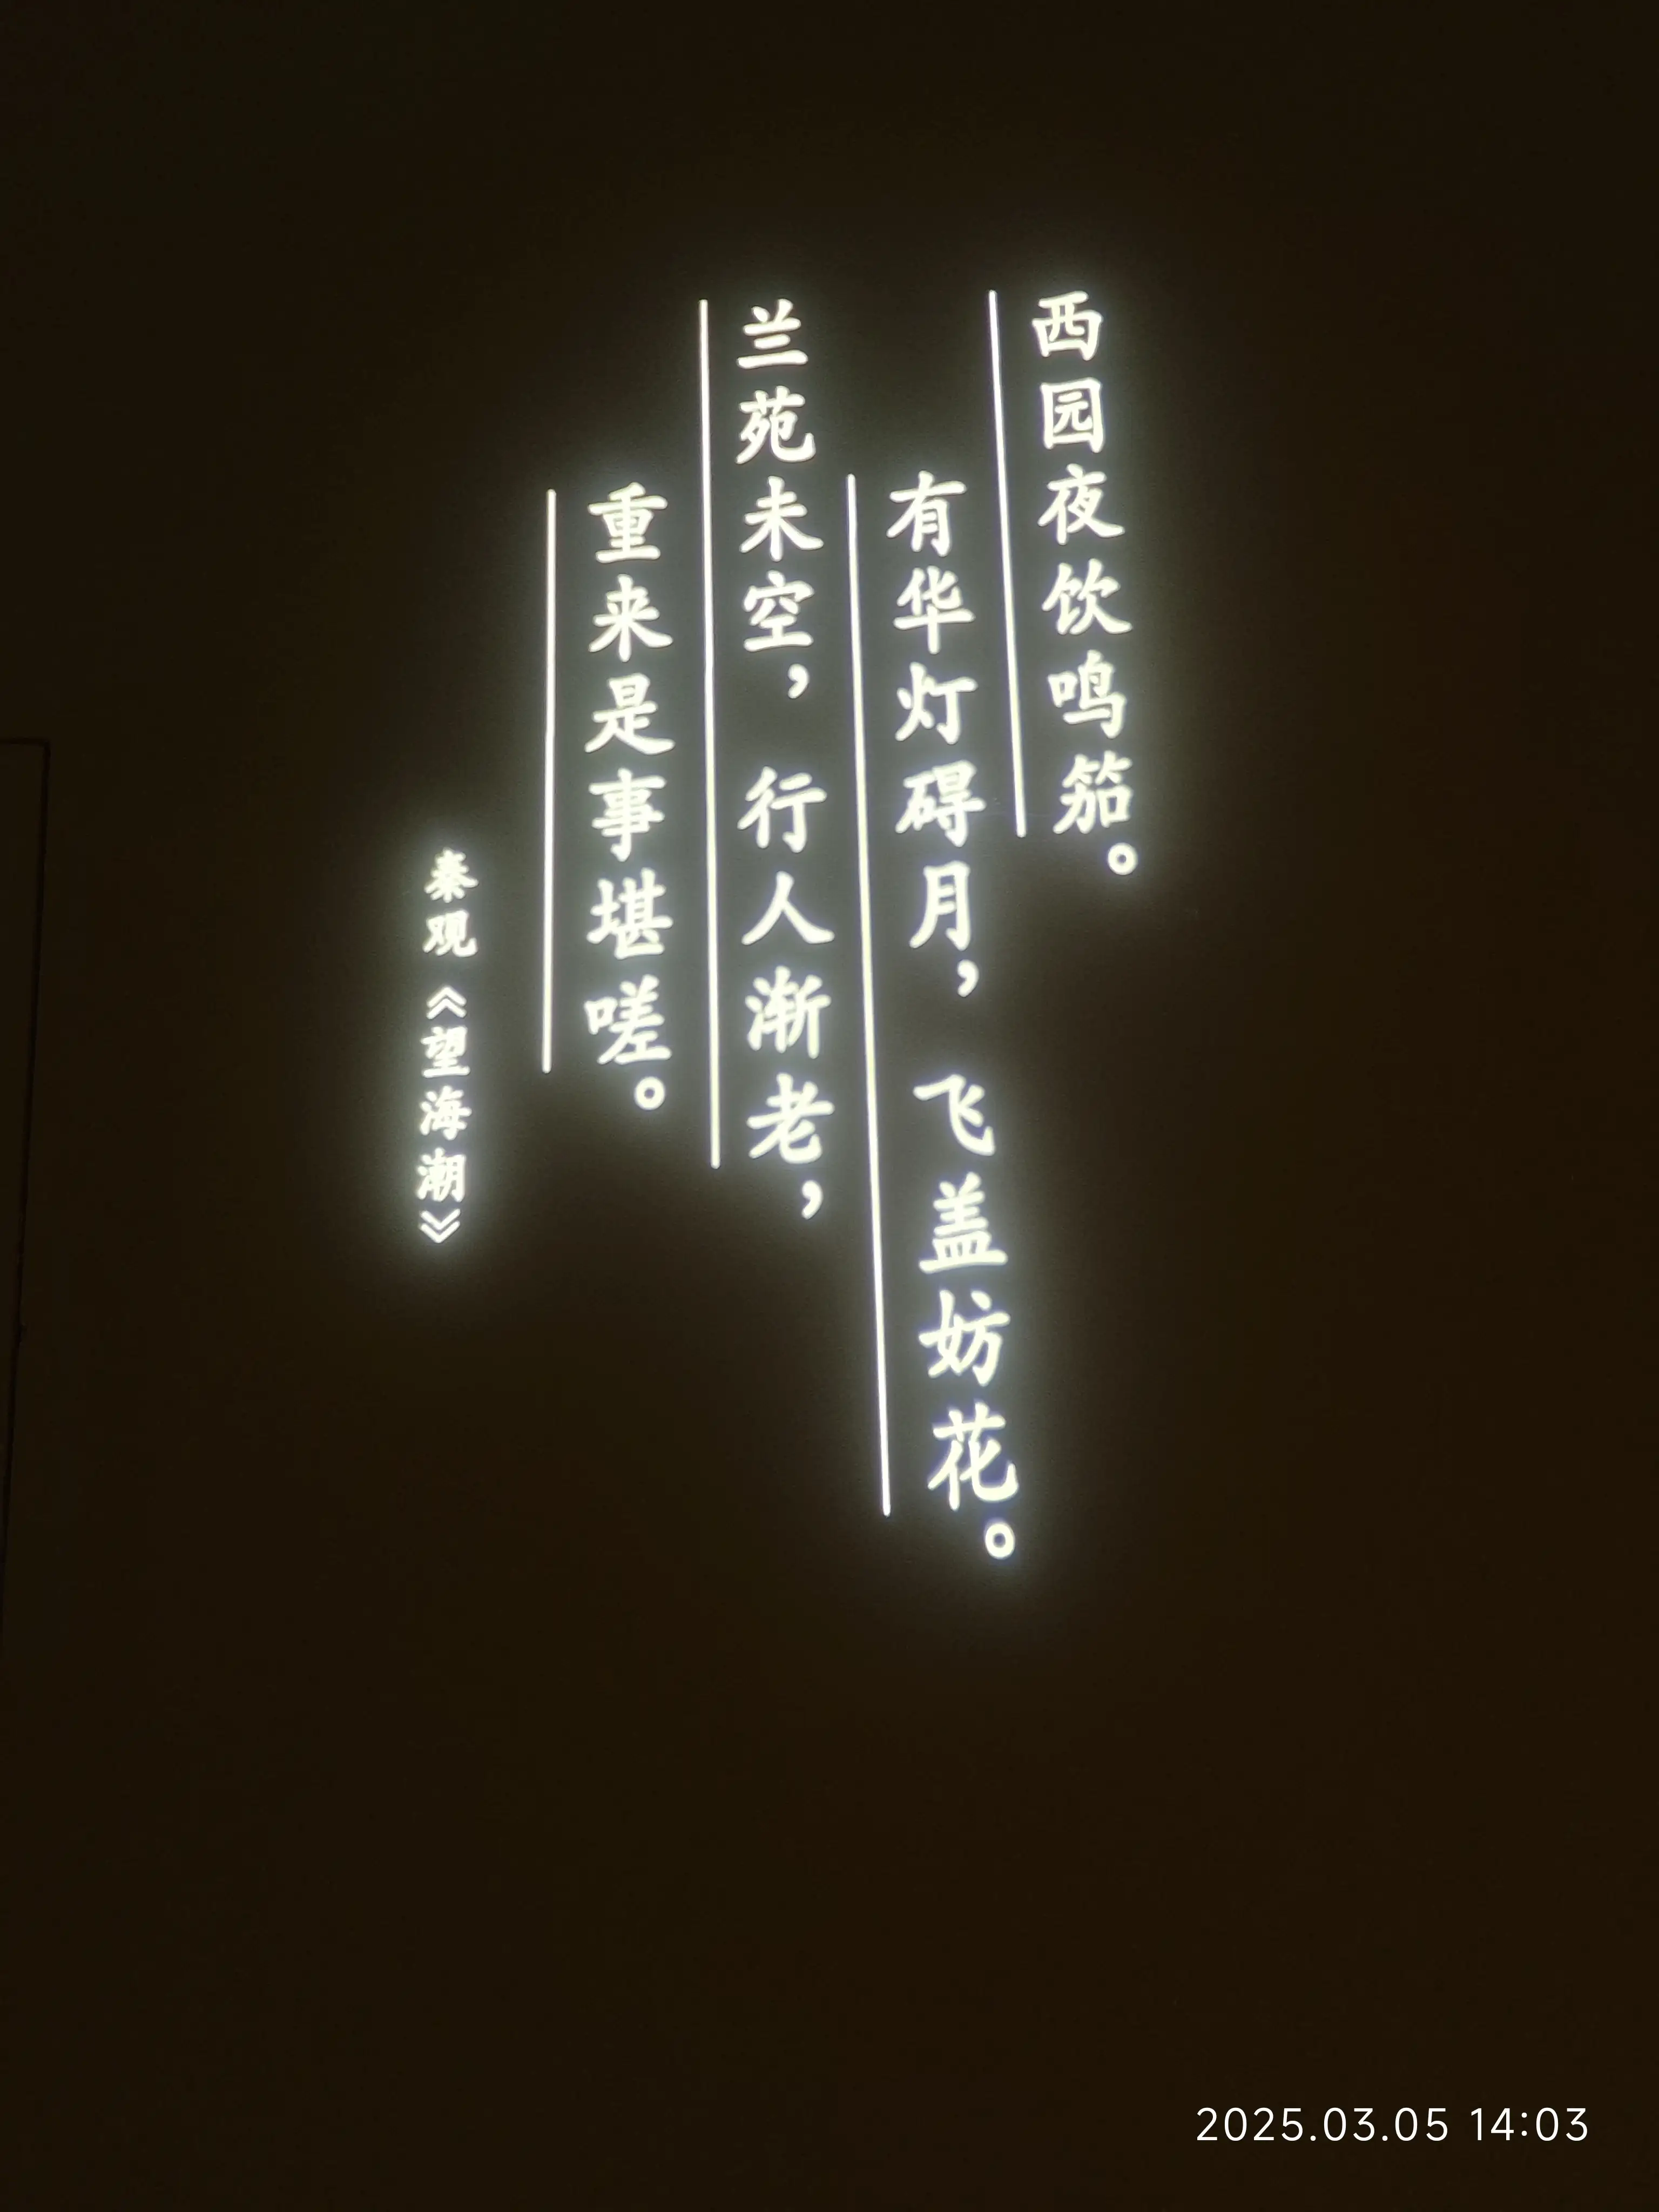 西园夜饮鸣笳。
有华灯碍月，飞盖妨花。
兰苑未空，行人渐老，
重来是事堪嗟。
秦观《望海潮》
2025.03.05 14:03